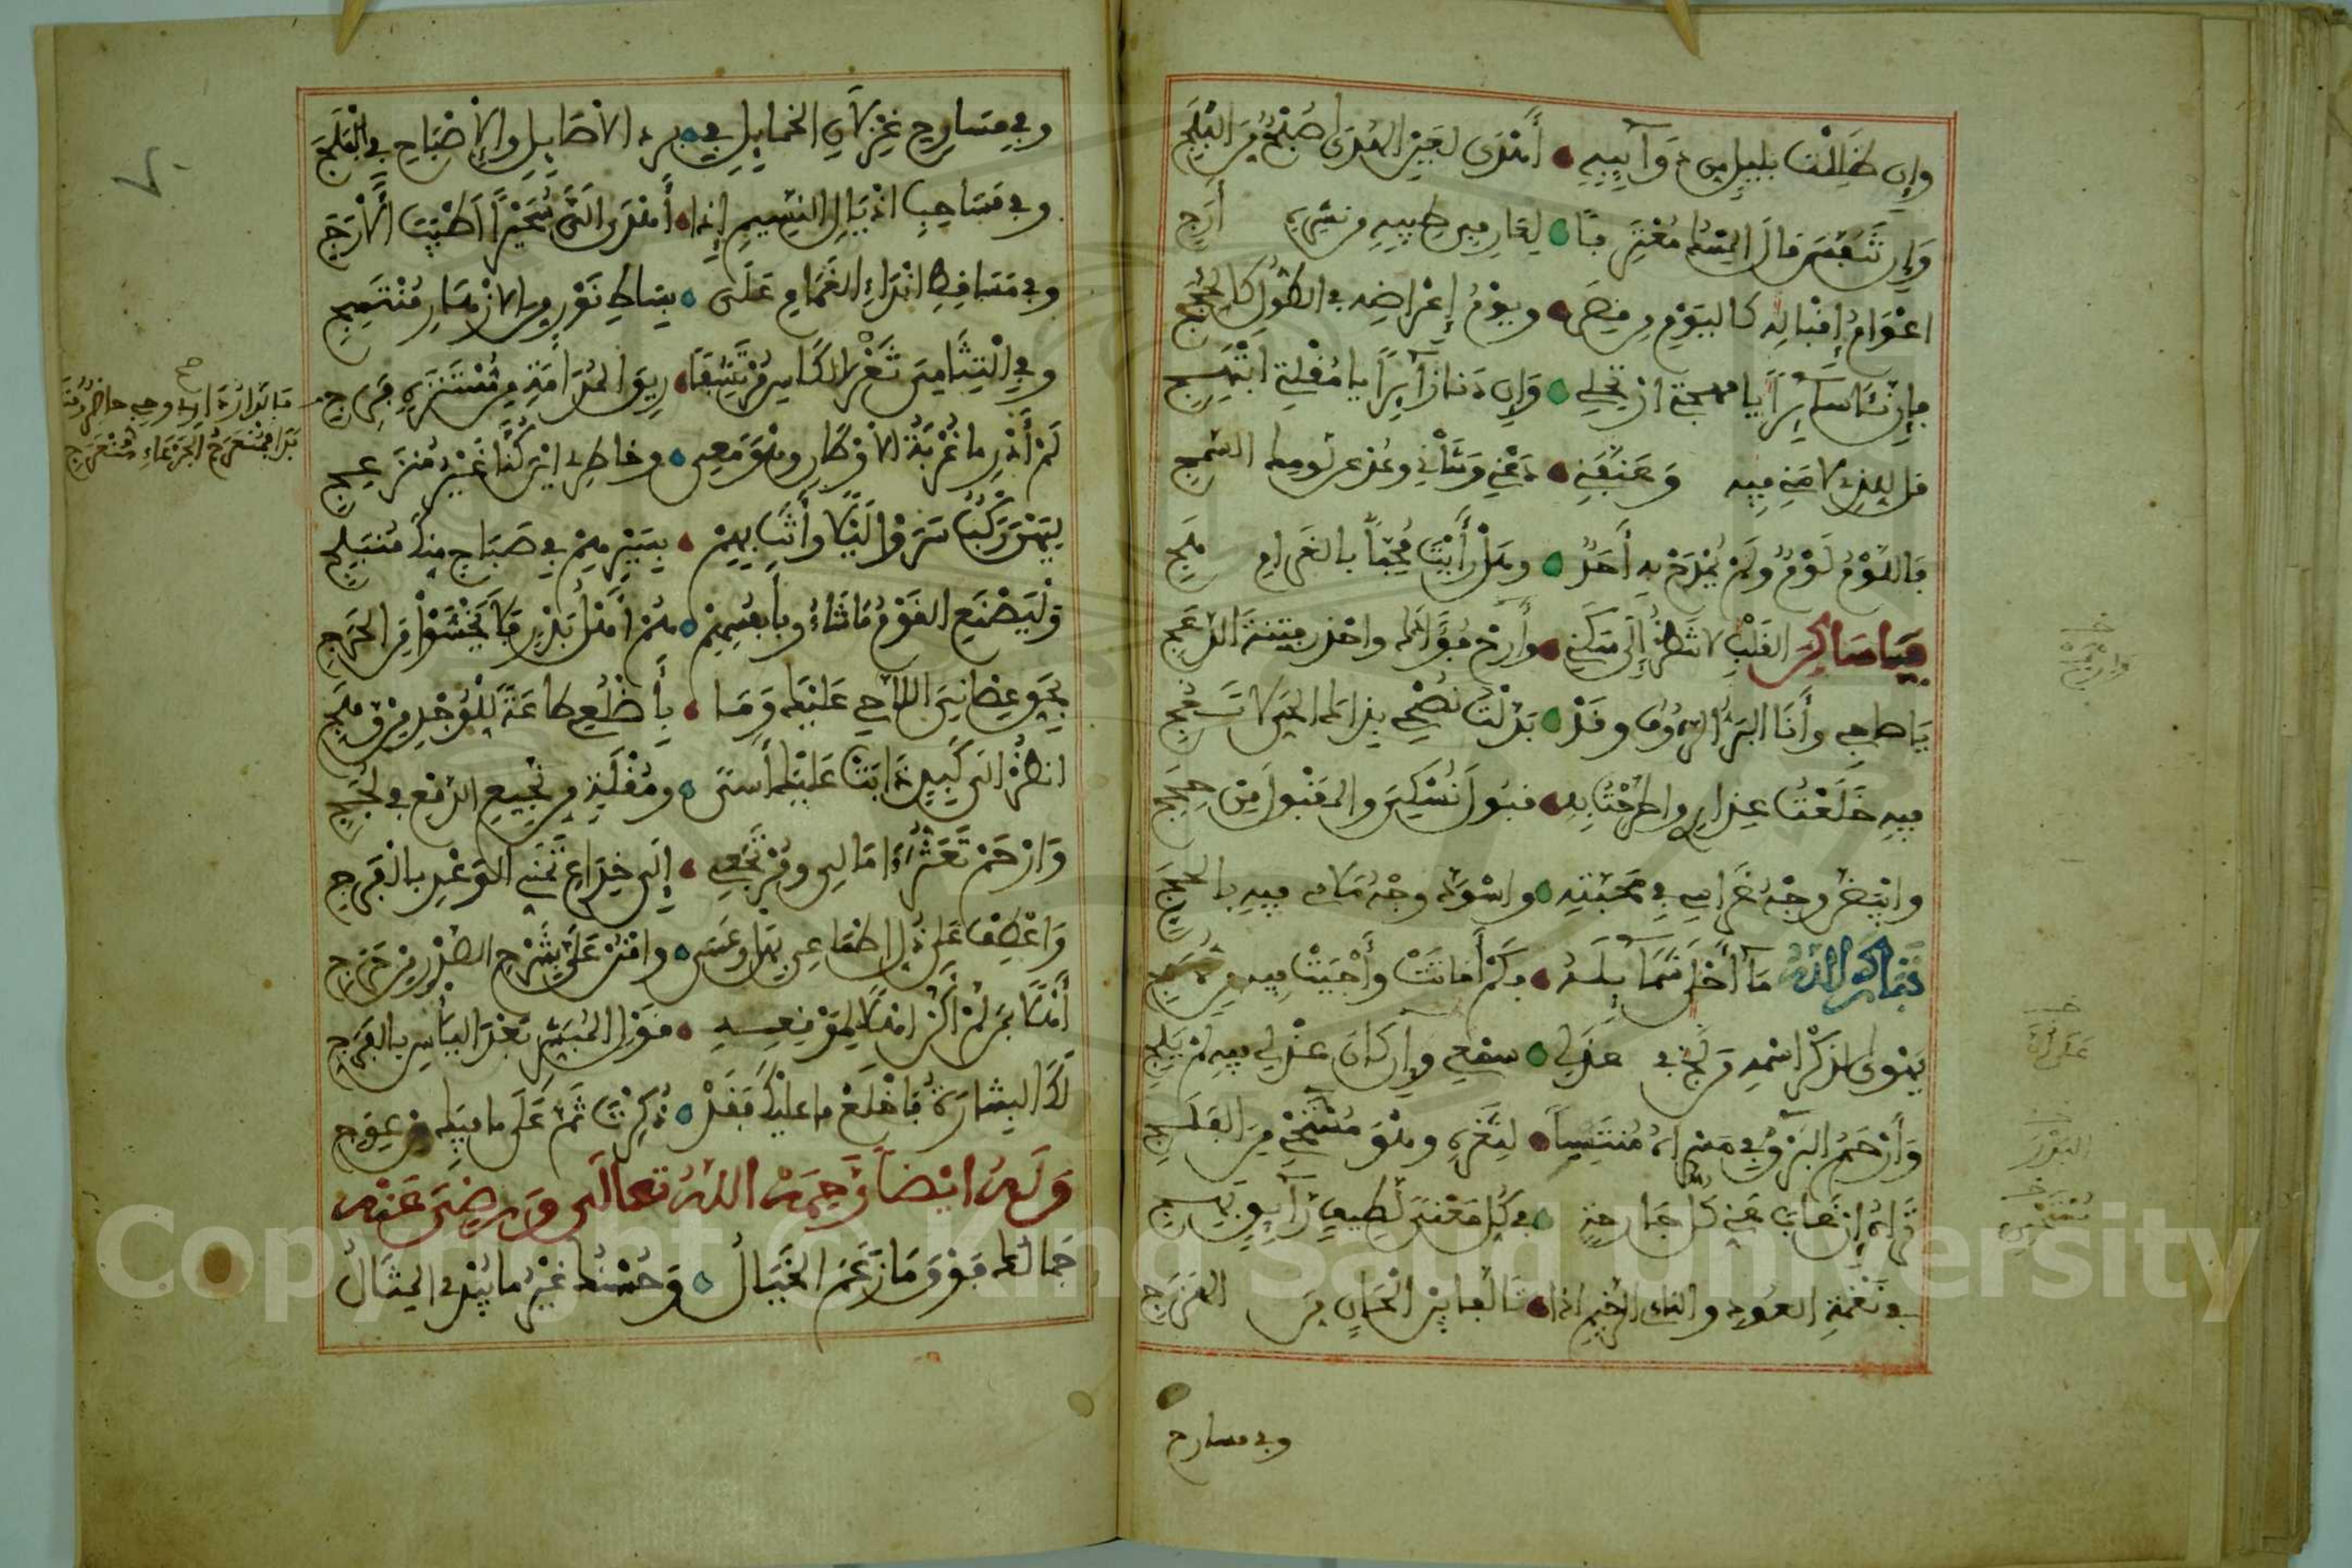 وإن ضللت بليل من ذوائبه • أهدى لعيني الهدى صبح من البلج
وإن تنفس قال المسك معترفا • لعارفي طيبه من نشره أرج
أعوام إقباله كاليوم في قصر • ويوم إعراضه في الطول كالحجج
فإن نأى سائرا يا مهجتي ارتحلي • وإن دنا زائرا يا مقلتي ابتهج
قل للذي لامني فيه وعنفني • دعني وشأني وعد عن لومك السمج
فاللوم لؤم ولم يمدح به أحد • وهل رأيت محبا بالغرام هج
يا ساكن القلب لا تنظر إلى سكني • وارح فؤادك واحذر فتنة الدعج
يا صاحبي وأنا البر الرؤوف وقد • بذلت نصحي بذاك الحي لا تعج
فيه خلعت عذاري واطرحت به • قبول نسكي والمقبول من حجج
وابيض وجه غرامي في محبته • واسود وجه ملامي فيه بالحجج
تبارك الله ما أحلى شمائله • فكم أماتت وأحيت فيه من مهج
يهوى لذكر اسمه من لج في عذلي • سمعي وإن كان عذلي فيه لم يلج
وأرحم البرق في مسراه منتسبا • لثغره وهو مستحي من الفلج
تراه إن غاب عني كل جارحة • في كل معنى لطيف رائق بهج
في نغمة العود والناي الرخيم إذا • تألفا بين ألحان من الهزج
وفي مسارح
البرق
وفي مسارح غزلان الخمايل في • برد الأصايل والإصباح في البلج
وفي مساحب أذيال النسيم إذا • أهدى إلي سحيرا أطيب الأرج
وفي مساقط أنداء الغمام على • بساط نور من الأزهار منتسج
وفي التثامي ثغر الكاس مرتشفا • ريق المدامة في مستنزه فرج
لم أدر ما غربة الأوطان وهو معي • وخاطري أين كنا غير منزعج
فالدار داري وحبي حاضر ومتى
بدا فمنعرج الجرعاء منعرج
ليهن ركب سروا ليلا وأنت بهم • بسيرهم في صباح منك منبلج
وليصنع القوم ما شاءوا بأنفسهم • هم أهل بدر فلا يخشوا من الحرج
بحق عصياني اللاحي عليك وما • بأضلعي طاعة للوجد من وهج
انظر إلى كبد ذابت عليك أسى • ومقلة من نجيع الدمع في لجج
وارحم تعثر آمالي ومرتجعي • إلى خداع تمني الوعد بالفرج
واعطف على ذل أطماعي بهل وعسى • وامنن علي بشرح الصدر من حرج
أهلا بما لم أكن أهلا لموقعه • قول المبشر بعد اليأس بالفرج
لك البشارة فاخلع ما عليك فقد • ذكرت ثم على ما فيك من عوج
وله أيضا رحمه الله تعالى ورضي عنه
جمالك فوق ما زعم الخيال • وحسنك غير ما يبدي المثال